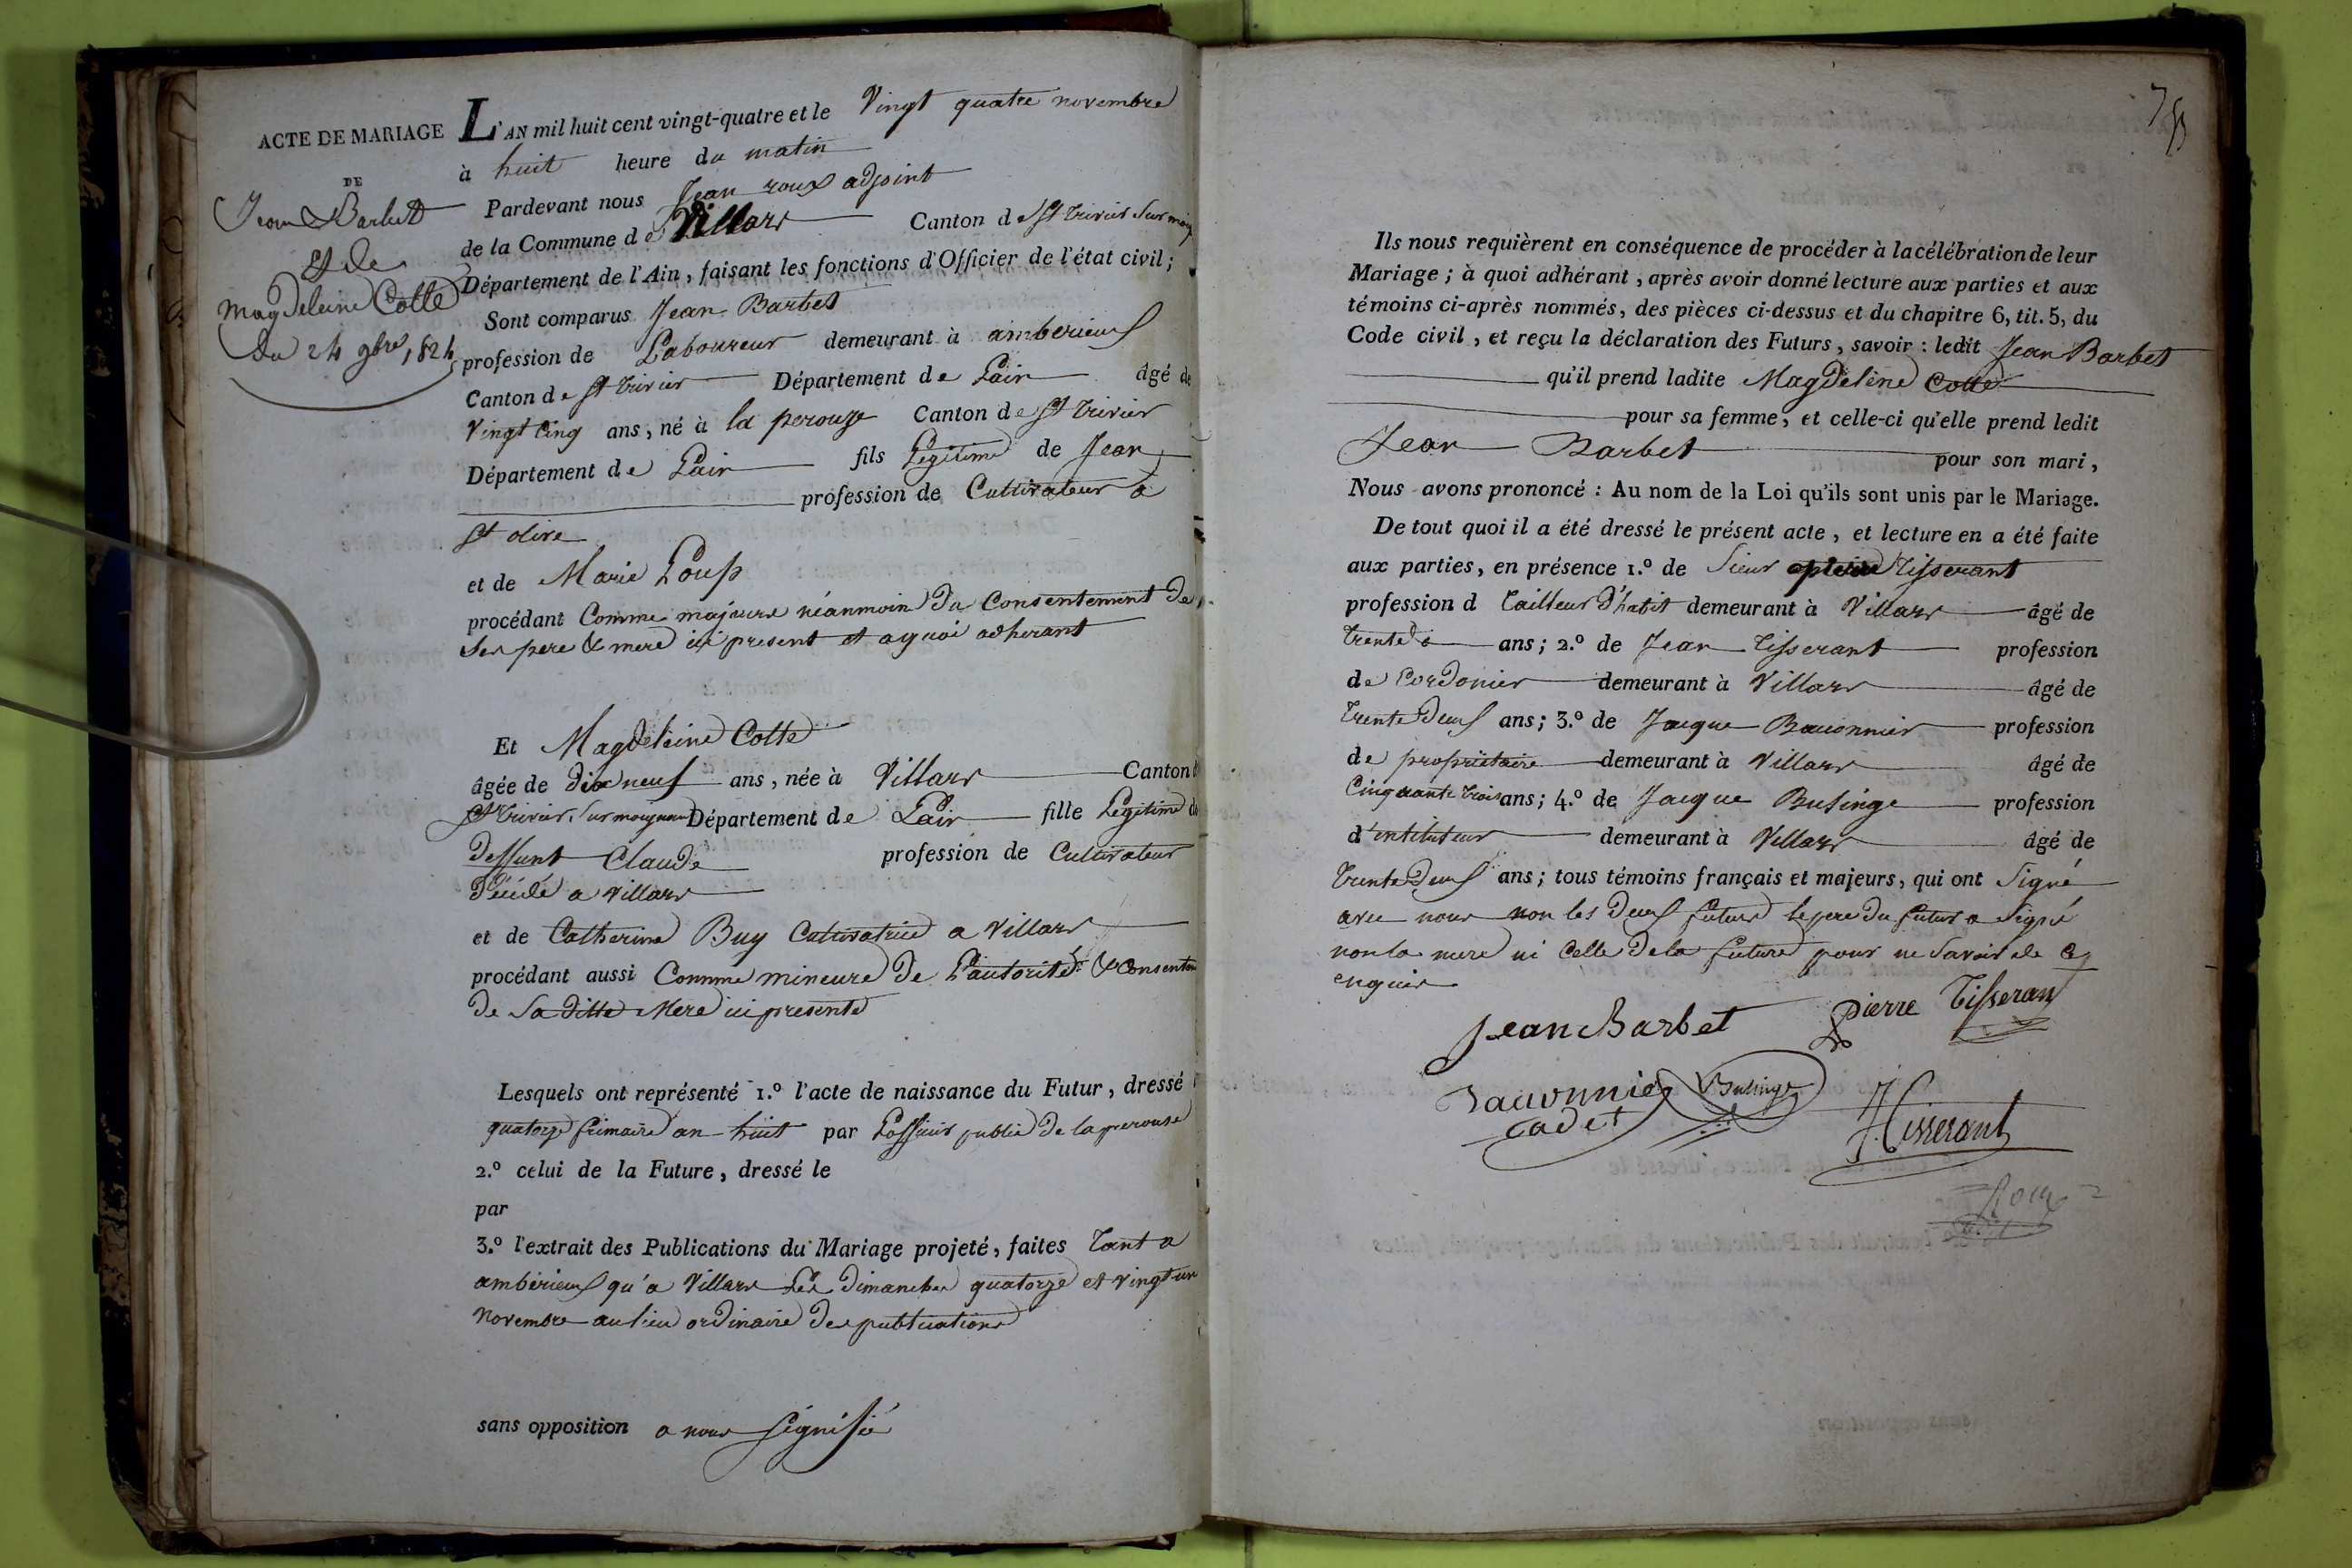 ACTE DE MARIAGE
DE
Jean Barbet
Et de
magdeleine Cotte
du 24 9bre 1824
L'AN mil huit cent vingt-quatre et le Vingt quatre novembre
à huit heure du matin
Pardevant nous Jean roux adjoint
de la Commune de Villars Canton de St trivier sur moig
Département de l'Ain, faisant les fonctions d'Officier de l'état civil;
Sont comparus Jean Barbet
profession de Laboureur demeurant à amberieux
Canton de St trivier Département de Lain âgé de
Vingt Cinq ans, né à la perouze Canton de St trivier
Département de Lain fils Légitime de Jean
profession de Cultivateur a
St olive
et de Marie Loup
procédant Comme majeure néanmoin du Consentement de
Ses pere & mere ici present et aquoi adherant
Et Magdeleine Cotte
âgée de dix neuf ans, née à Villars Canton
St trivier, Sur moignan Département de Lain fille Légitime de
deffunt Claude profession de Cultivateur
décédé a villars
et de Catherine Buy Cultivatrice a Villars
procédant aussi Comme mineure de L'autorité & Consentem
de Sa ditte Mere ici presente
Lesquels ont représenté 1.º l'acte de naissance du Futur, dressé
quatorze frimaire an huit par Lofficier public de la perouse
2.º celui de la Future, dressé le
par
3.º l'extrait des Publications du Mariage projeté, faites tant a
amberieux qu'a Villars Les dimanches quatorze et vingt un
Novembre au lieu ordinaire des publications
sans opposition a nous Signifié
Ils nous requièrent en conséquence de procéder à la célébration de leur
Mariage; à quoi adhérant, après avoir donné lecture aux parties et aux
témoins ci-après nommés, des pièces ci-dessus et du chapitre 6, tit. 5, du
Code civil, et reçu la déclaration des Futurs, savoir: ledit Jean Barbet
qu'il prend ladite Magdelène Cotte
pour sa femme, et celle-ci qu'elle prend ledit
Jean Barbet pour son mari,
Nous avons prononcé: Au nom de la Loi qu'ils sont unis par le Mariage.
De tout quoi il a été dressé le présent acte, et lecture en a été faite
aux parties, en présence 1.º de Sieur tisserant
profession d tailleur d'habit demeurant à Villars âgé de
trente ans; 2.º de Jean tisserant profession
de Cordonier demeurant à Villars âgé de
trente deux ans; 3.º de Jacque Bauonnier profession
de propriétaire demeurant à Villars âgé de
Cinquante trois ans; 4.º de Jacque Businge profession
d'intituteur demeurant à Villars âgé de
trente deux ans; tous témoins français et majeurs, qui ont Signé
avec nous non les deux futurs le pere du futur a Signé
non la mere ni Celle de la future pour ne Savoir de Ce
enquis
Jean Barbet
pierre tisseran
Bauonnier
cadet
Businge
J tisserant
Roux